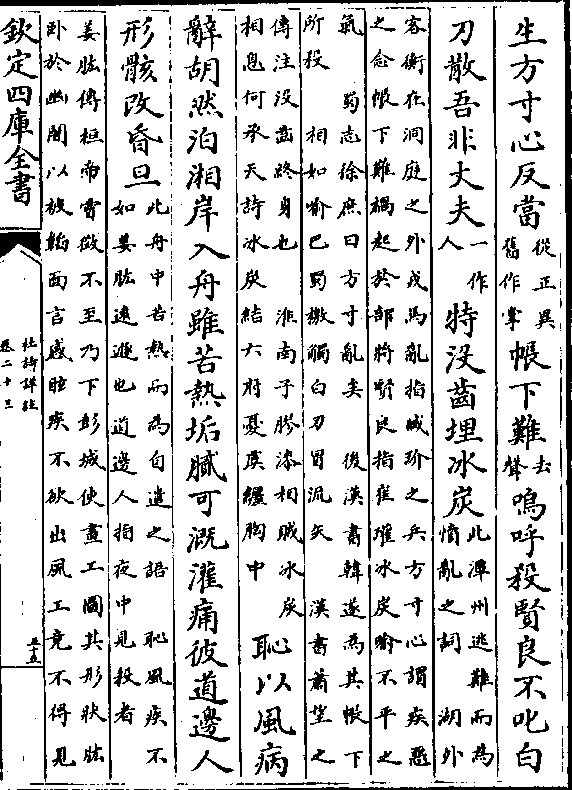 生方寸心反當從正異舊作掌帳下難去聲嗚呼殺賢良不叱白
刃散吾非丈夫一作人特没齒埋冰炭此潭州逃難而為憤亂之詞 湖外
客衡在洞庭之外戎馬亂指臧玠之兵方寸心謂疾惡
之念帳下難禍起於部將賢良指崔瓘冰炭喻不平之
氣 蜀志徐庶曰方寸亂矣 後漢書韓遂為其帳下
所殺 相如喻巴蜀檄觸白刃冒流矢 漢書蕭望之
傳注没齒終身也 淮南子膠漆相賊冰炭
相息何承天詩冰炭結六府憂虞纏胸中 恥以風病
辭胡然泊湘岸入舟雖苦熱垢膩可溉灌痛彼道邊人
形骸改昏旦此舟中苦熱而為自遣之語 恥風疾不如姜肱遠遯也道邊人指夜中見殺者
姜肱傳桓帝嘗徵不至乃下彭城使畫工圖其形狀肱
卧於幽闇以被韜面言感眩疾不欲出風工竟不得見
欽定四庫全書
杜詩詳註
卷二十三
五十五